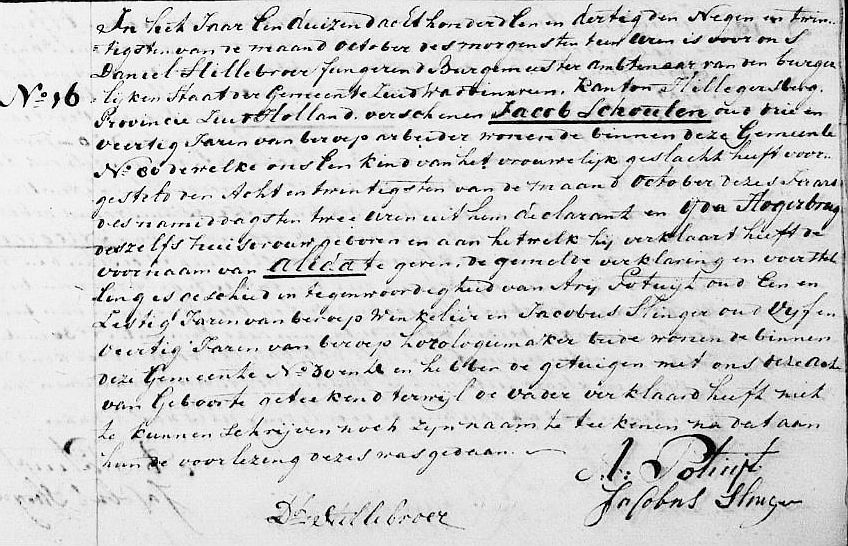 In het Jaar Een duizend acht honderd Een en dertig den Negen en twin-
tigsten van de maand October des morgens ten tien Uren is voor ons
Daniel Hillebroer fungerend Burgemeester ambtenaar van den burger
No 16
lijken Staat der Gemeente Zuid Waddinxveen, Kanton Hillegersberg,
Provincie Zuid Holland. verschenen Jacob Schouten oud drie en
veertig Jaren van beroep arbeider wonende binnen deze Gemeente
No dewelke ons Een kind van het vrouwelijk geslacht heeft voor-
gesteld den Acht en twintigsten van de maand October dezes Jaars
des namiddags ten twee uren uit hem declarant en Yda Hogerbrug
deszelfs huisvrouw geboren en aan hetwelk hij verklaart heeft de
voornaam van Alida te geven. de gemelde verklaring en voorstel
ling is geschied in tegenwoordigheid van Ary Potuijt oud Een en
Zestig Jaren van beroep Winkelier en Jacobus Slinger oud Vijf en
veertig Jaren van beroep horologiemaker beide wonende binnen
deze Gemeente No en hebben de getuigen met ons deze acte
van Geboorte geteekend terwijl de vader verklaard heeft niet
te kunnen schrijven noch zijn naam te teekenen na dat aan
hun de voorlezing dezes was gedaan.
A: Potuijt
Jacobus Slinger
Dl Hillebroer